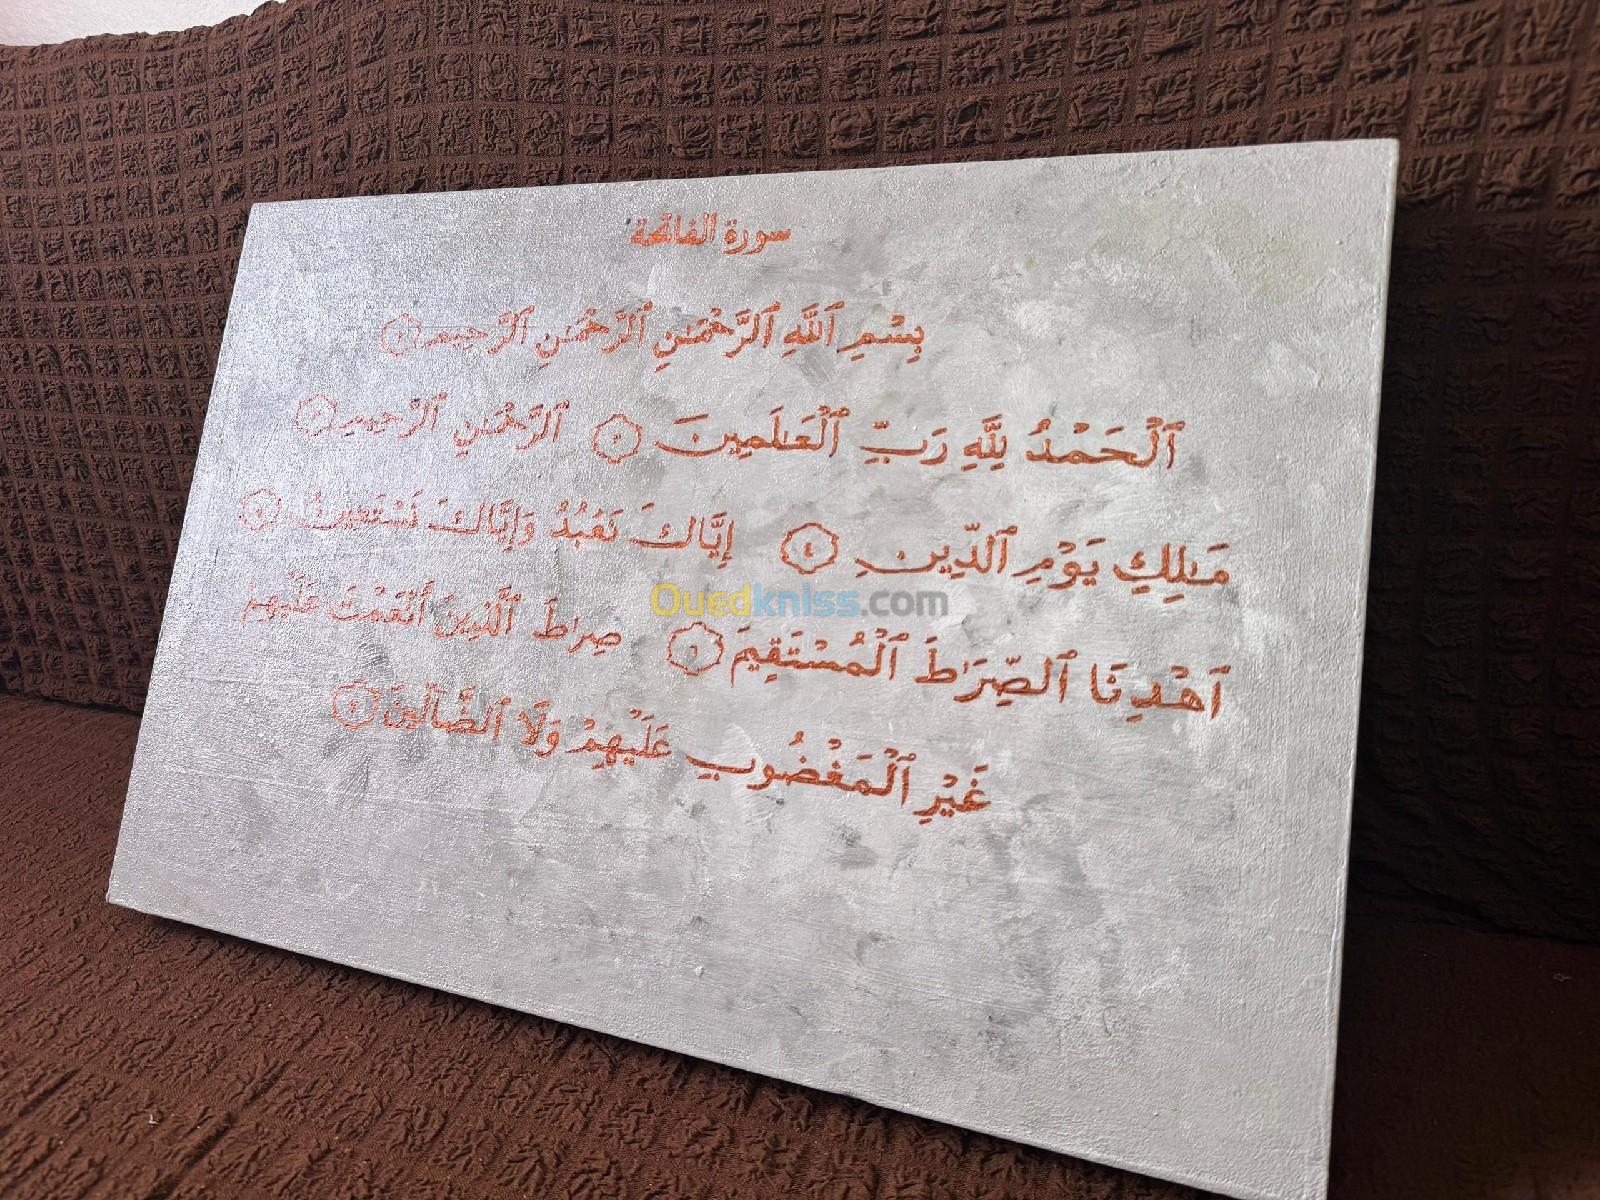 سورة الفاتحة
بِسْمِ ٱللَّهِ ٱلرَّحْمَـٰنِ ٱلرَّحْمَـٰنِ ٱلرَّحِيمِ ١
ٱلْحَمْدُ لِلَّهِ رَبِّ ٱلْعَـٰلَمِينَ ٢ ٱلرَّحْمَـٰنِ ٱلرَّحِيمِ
مَـٰلِكِ يَوْمِ ٱلدِّينِ ٤ إِيَّاكَ نَعْبُدُ وَإِيَّاكَ نَسْتَعِينُ
ٱهْدِنَا ٱلصِّرَٰطَ ٱلْمُسْتَقِيمَ ٦ صِرَٰطَ ٱلَّذِينَ أَنْعَمْتَ عَلَيْهِمْ
غَيْرِ ٱلْمَغْضُوبِ عَلَيْهِمْ وَلَا ٱلضَّالِّينَ
Ouedkniss.com